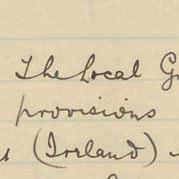 The Local G
provisions
(Ireland)